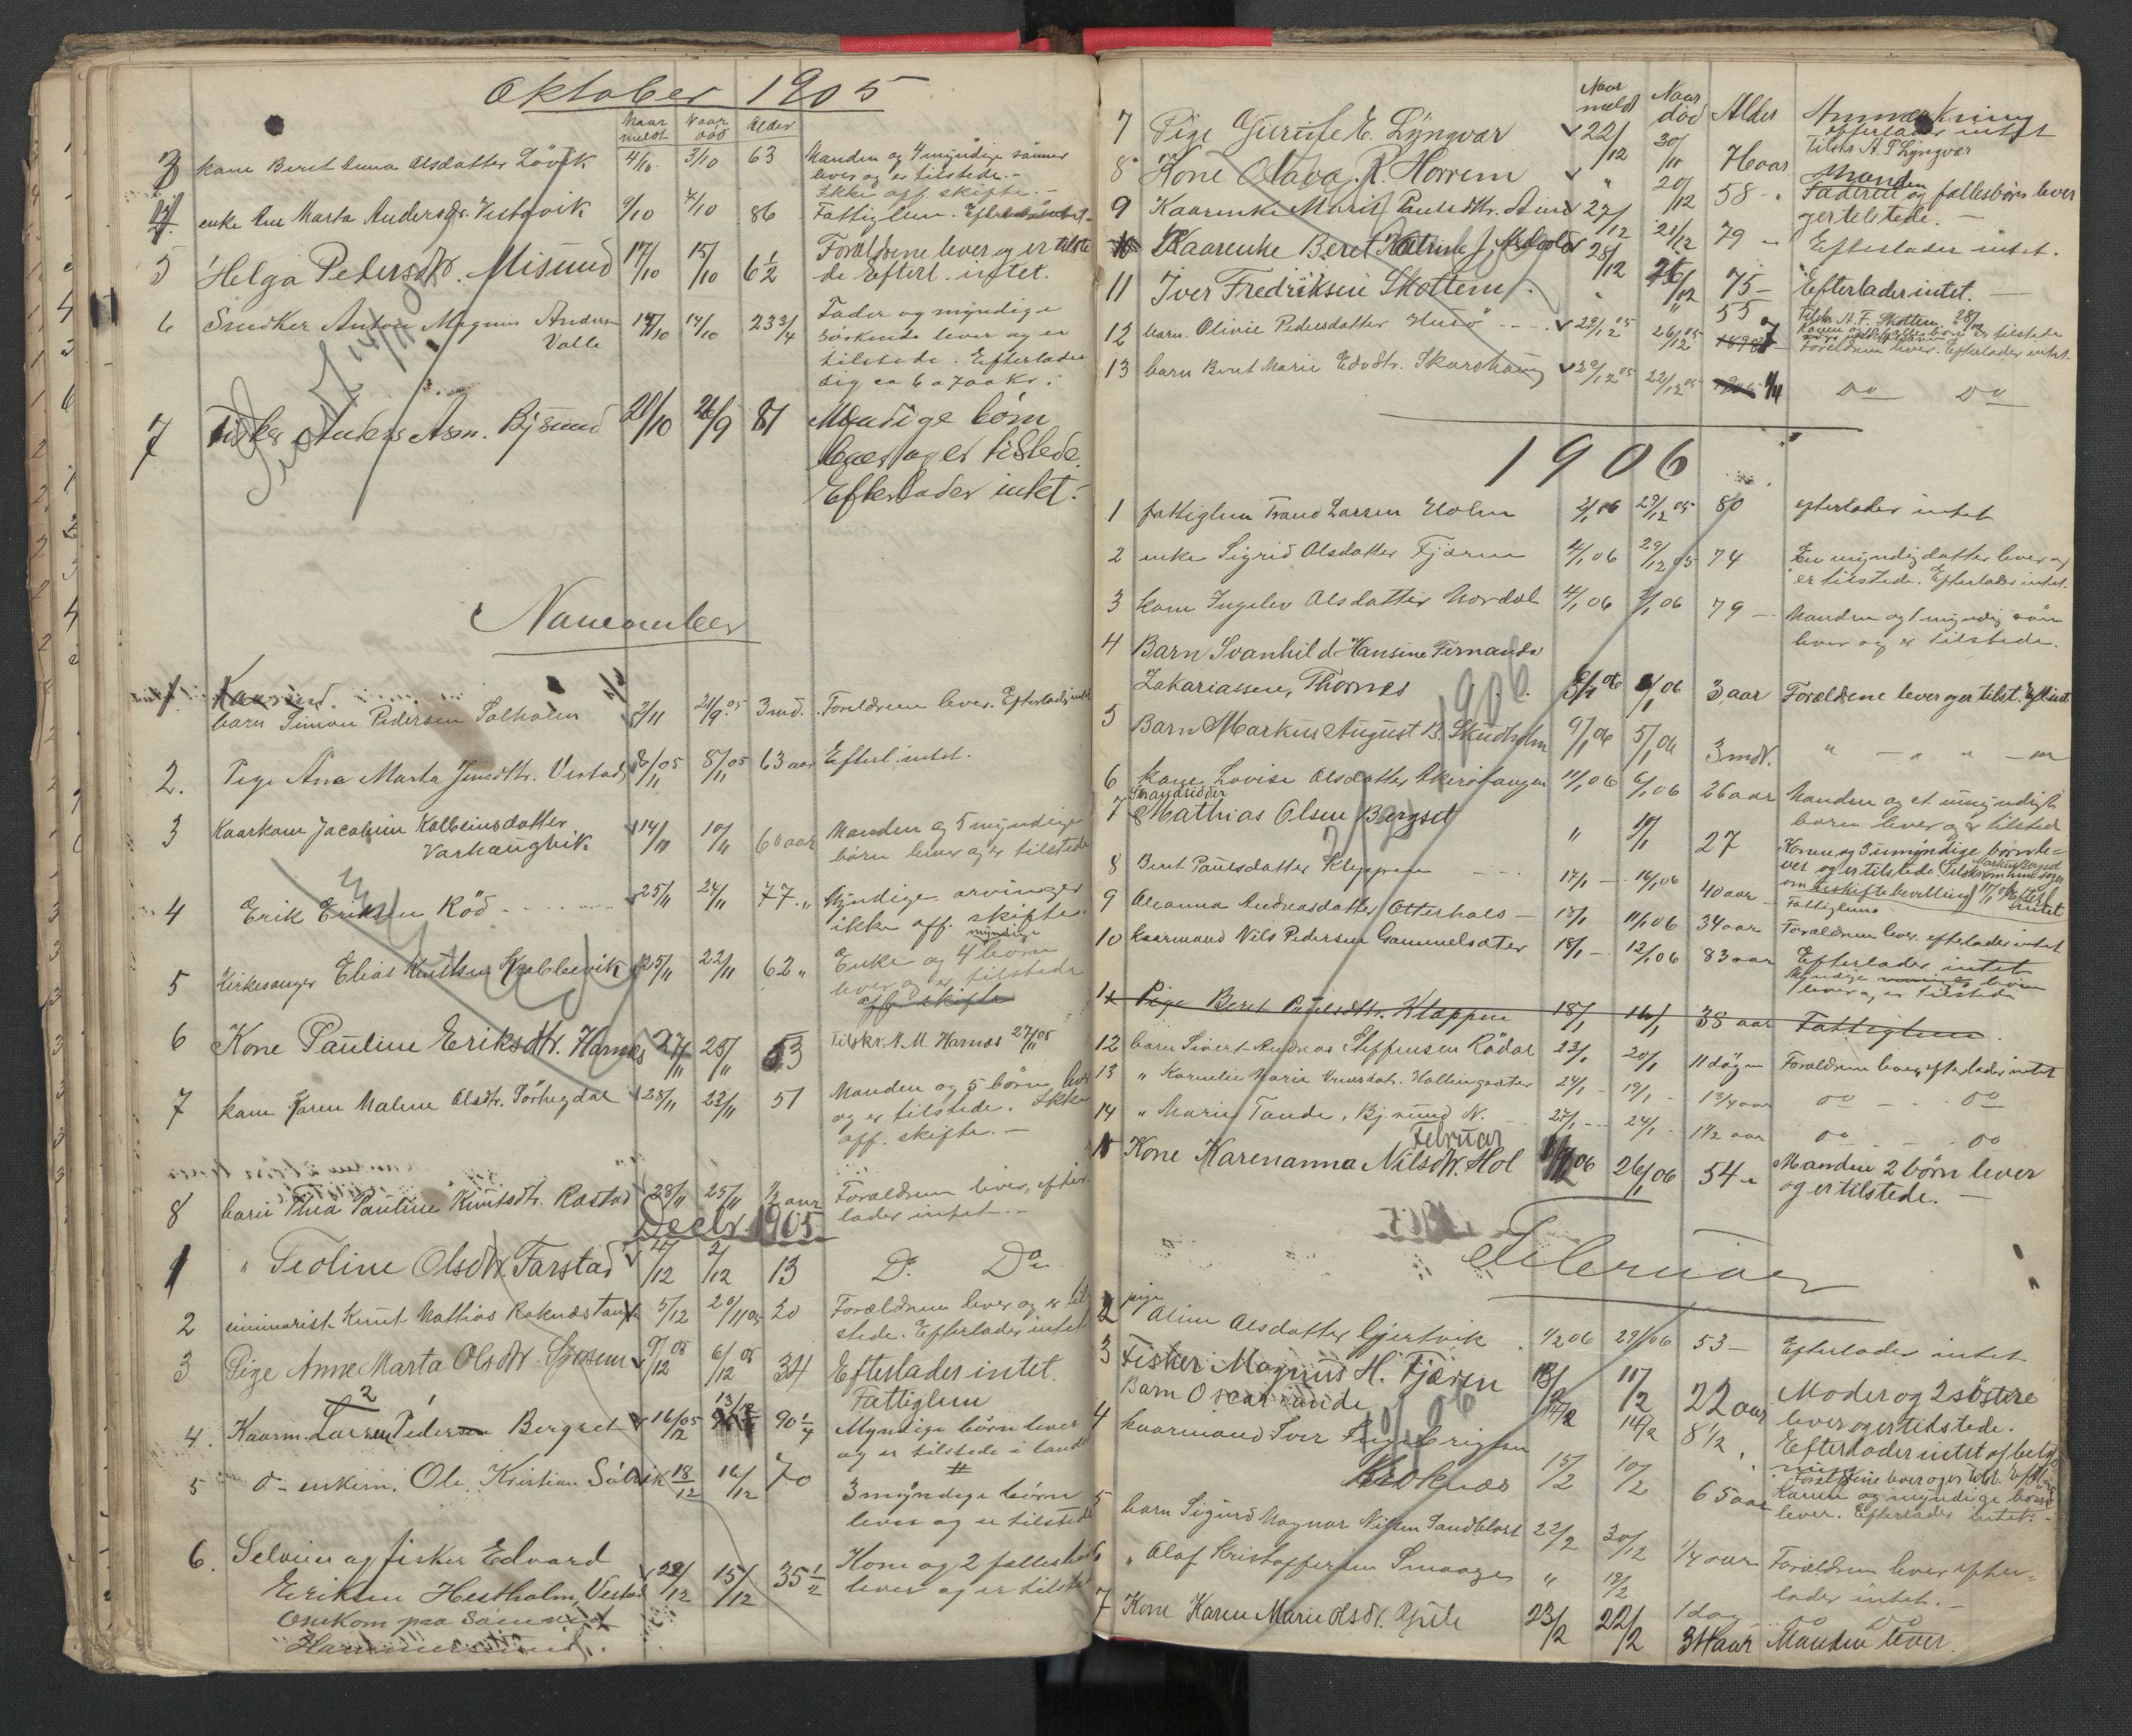 Oktober 1905
Naar meldt Naar död Alder
3 kone Beret Anna Olsdatter Lövik 4/10 3/10 63 Manden og 4 myndige sönner
lever og er tilstede.-
Ikke off. skifte.-
4 enke Ane Marta Andersdr. Vestavik 9/10 7/10 86 Fattiglem.
5 Helga Pedersdtr. Misund 17/10 15/10 6 1/2 Forældrene lever og er tilste
de. Efterl. intet.
6 Snedker Anton Magnus Andersen 14/10 23 3/4 Fader og myndige
Valle söskende lever og er
tilstede. Efterlader
sig ca 6 a 700 kr.
7 Fisker Anders Asm. Bjsund 20/10 26/9 81 Myndige börn
lever og er tilstede.
Efterlader intet.
November
1 Kaarmd.
barn Simon Pedersen Solholm 2/11 21/9 05 3 md. Foreldrene lever. Efterlader intet
2. Pige Ana Marta Jensdtr. Vestad 8/11 05 8/11 05 63 aar Efterl. intet.
3 Kaarkone Jacobine Kolbeinsdatter
Varhaugvik 14/11 10/11 60 aar Manden og 5 myndige
börn lever og er tilstede
4 Erik Eriksen Röd 25/11 24/11 77 " Myndige arvinger
ikke off. skifte.
myndige
5 Kirkesanger Elias Knutsen Krabbevik 25/11 22/11 62 " Enke og 4 börn
lever og er tilstede
off skifte
6 Kone Pauline Eriksdtr. Harnes 27/11 25/11 53 Tilskr. N. M. Harnæs 27/11 05
7 kone Karen Malene Olsdtr. Sörhegdal 28/11 23/11 51 Manden og 5 börn lever
og er tilstede. Ikke
off. skifte.-
8 barn Ana Pauline Knutsdtr. Rastad 28/11 25/11 1/2 aar Forældrene lever, efter
lader intet.-
Decbr 1905
1 " Teoline Olsdtr. Farstad 4/12 2/12 13 Do Do
2 siminarist Knut Mathias Raknæstangen 5/12 20/11 05 20 Forældrene lever og er til
stede. Efterlader intet
3 Pige Anne Marta Olsdtr. 9/12 05 6/12 05 34 Efterlader intet.
Fattiglem
4. Kaarm. Lars Pedersen Bergset 16/12 05 13/12 90 1/4 Myndige börn lever
og er tilstede i landet
5 do- enkem. Ole Kristian Solvik 18/12 16/12 70 3 myndige börn
lever og er tilstede
6. Selveier og fisker Edvard
Eriksen Hestholm, Vestad 22/12 15/12 35 1/2 Kone og 2 fællesbörn
lever og er tilstede
Omkom paa Sömmet
Naar meldt Naar död Alder Anmærkning
7 Pige Gurine E. Lyngvær 22/12 30/11 74 aar efterlader intet
Tilskr. A. P. Lyngvær
8 Kone Olava R. Horrem " 20/12 58 - " Manden og fællesbörn lever
og er tilstede.
9 Kaarenke Marit Paulsdtr. 27/12 21/12 79 - Efterlader intet.
10 Kaarenke Beret Katrine J. 28/12 26/12 75 - Efterlader intet.
11 Iver Fredriksen Skottem. " 55 Tilskr. A. F. Skottem 28/12
12 barn Olivie Pedersdatter Husö 29/12 05 26/12 05 7 Foreldrene lever. Efterlader intet.
13 barn Beret Marie Edvdtr. Skarshaug 29/12 05 22/12 05 1/4 Do Do
1906
1 fattiglem Trond Larsen Holm 2/1 06 29/12 05 80 efterlader intet
2 enke Sigrid Olsdatter Fjæren 4/1 06 29/12 05 74 En myndig datter lever og
er tilstede. Efterlader intet.
3 kone Ingelev Olsdatter Nordal 4/1 06 06 79 - Manden og 1 myndig sön
lever og er tilstede.
4 Barn Svanhild Hansine Fernanda
Zakariassen, Thornes 06 06 3 aar Forældrene lever og er tilst. Eft. intet
5 Barn Markus August B. Skudholm 9/1 06 5/1 06 3 mdr. " - " " - "
6 kone Lovise Olsdatter 11/1 06 6/1 06 26 aar Manden og et umyndigt
barn lever og er tilsted
7 Mathias Olsen Bergset " 27 Konen og 3 umyndige börn le=
ver og er tilstede.
om uskiftebevilling
8 Beret Paulsdatter Kleppen 17/1 - 16/1 06 40 aar - Fattiglem
9 Oleanna Andreasdatter Otterhals - 18/1 11/1 06 34 aar Forældrene lever. efterlader intet
10 kaarmand Nils Pedersen Gammelsæter 18/1 - 12/1 06 83 aar Efterlader intet
Myndige börn
lever og er tilstede
11 Pige Beret Paulsdtr. Klappen 18/1 16/1 38 aar Fattiglem
12 barn Sivert Andreas Steffensen Rödal 23/1 20/1 11 dögn Forældrene lever, efterlader intet
13 " Kornelie Marie Hollingsæter 24/1 - 19/1 - 1 3/4 aar do - - do
14 " Marie Tande, Bj.sund N. 27/1 24/1 1 1/2 aar do - - do
Februar
1 Kone Karenanna Nilsdtr. Hol 06 26/1 06 54 " Manden 2 börn lever
og er tilstede.
Februar
2 pige Oline Olsdatter Gjertvik 1/2 06 29/1 06 53 - Efterlader intet
3 Fisker Magnus H. Fjæren 11/2 22 aar Moder og 2 söstre
lever og er tilstede.
Efterlader intet af betyd
ning
Barn Oscar 14/2 8 1/2 Forældrene lever og er tilst.
4 kaarmand Iver Ingebrigtsen
Kroknæs 15/2 10/2 65 aar Konen og myndige börn
lever. Efterlader intet.-
5 barn Sigurd Magnar Nilsen Sandblaast 22/2 30/12 1/4 aar Forældrene lever efter=
lader intet.-
6 " Olaf Kristoffersen Smaage " 19/2 1 dag do do
7 Kone Karen Marie Olsdr. Gule 23/2 22/2 34 aar Manden lever.